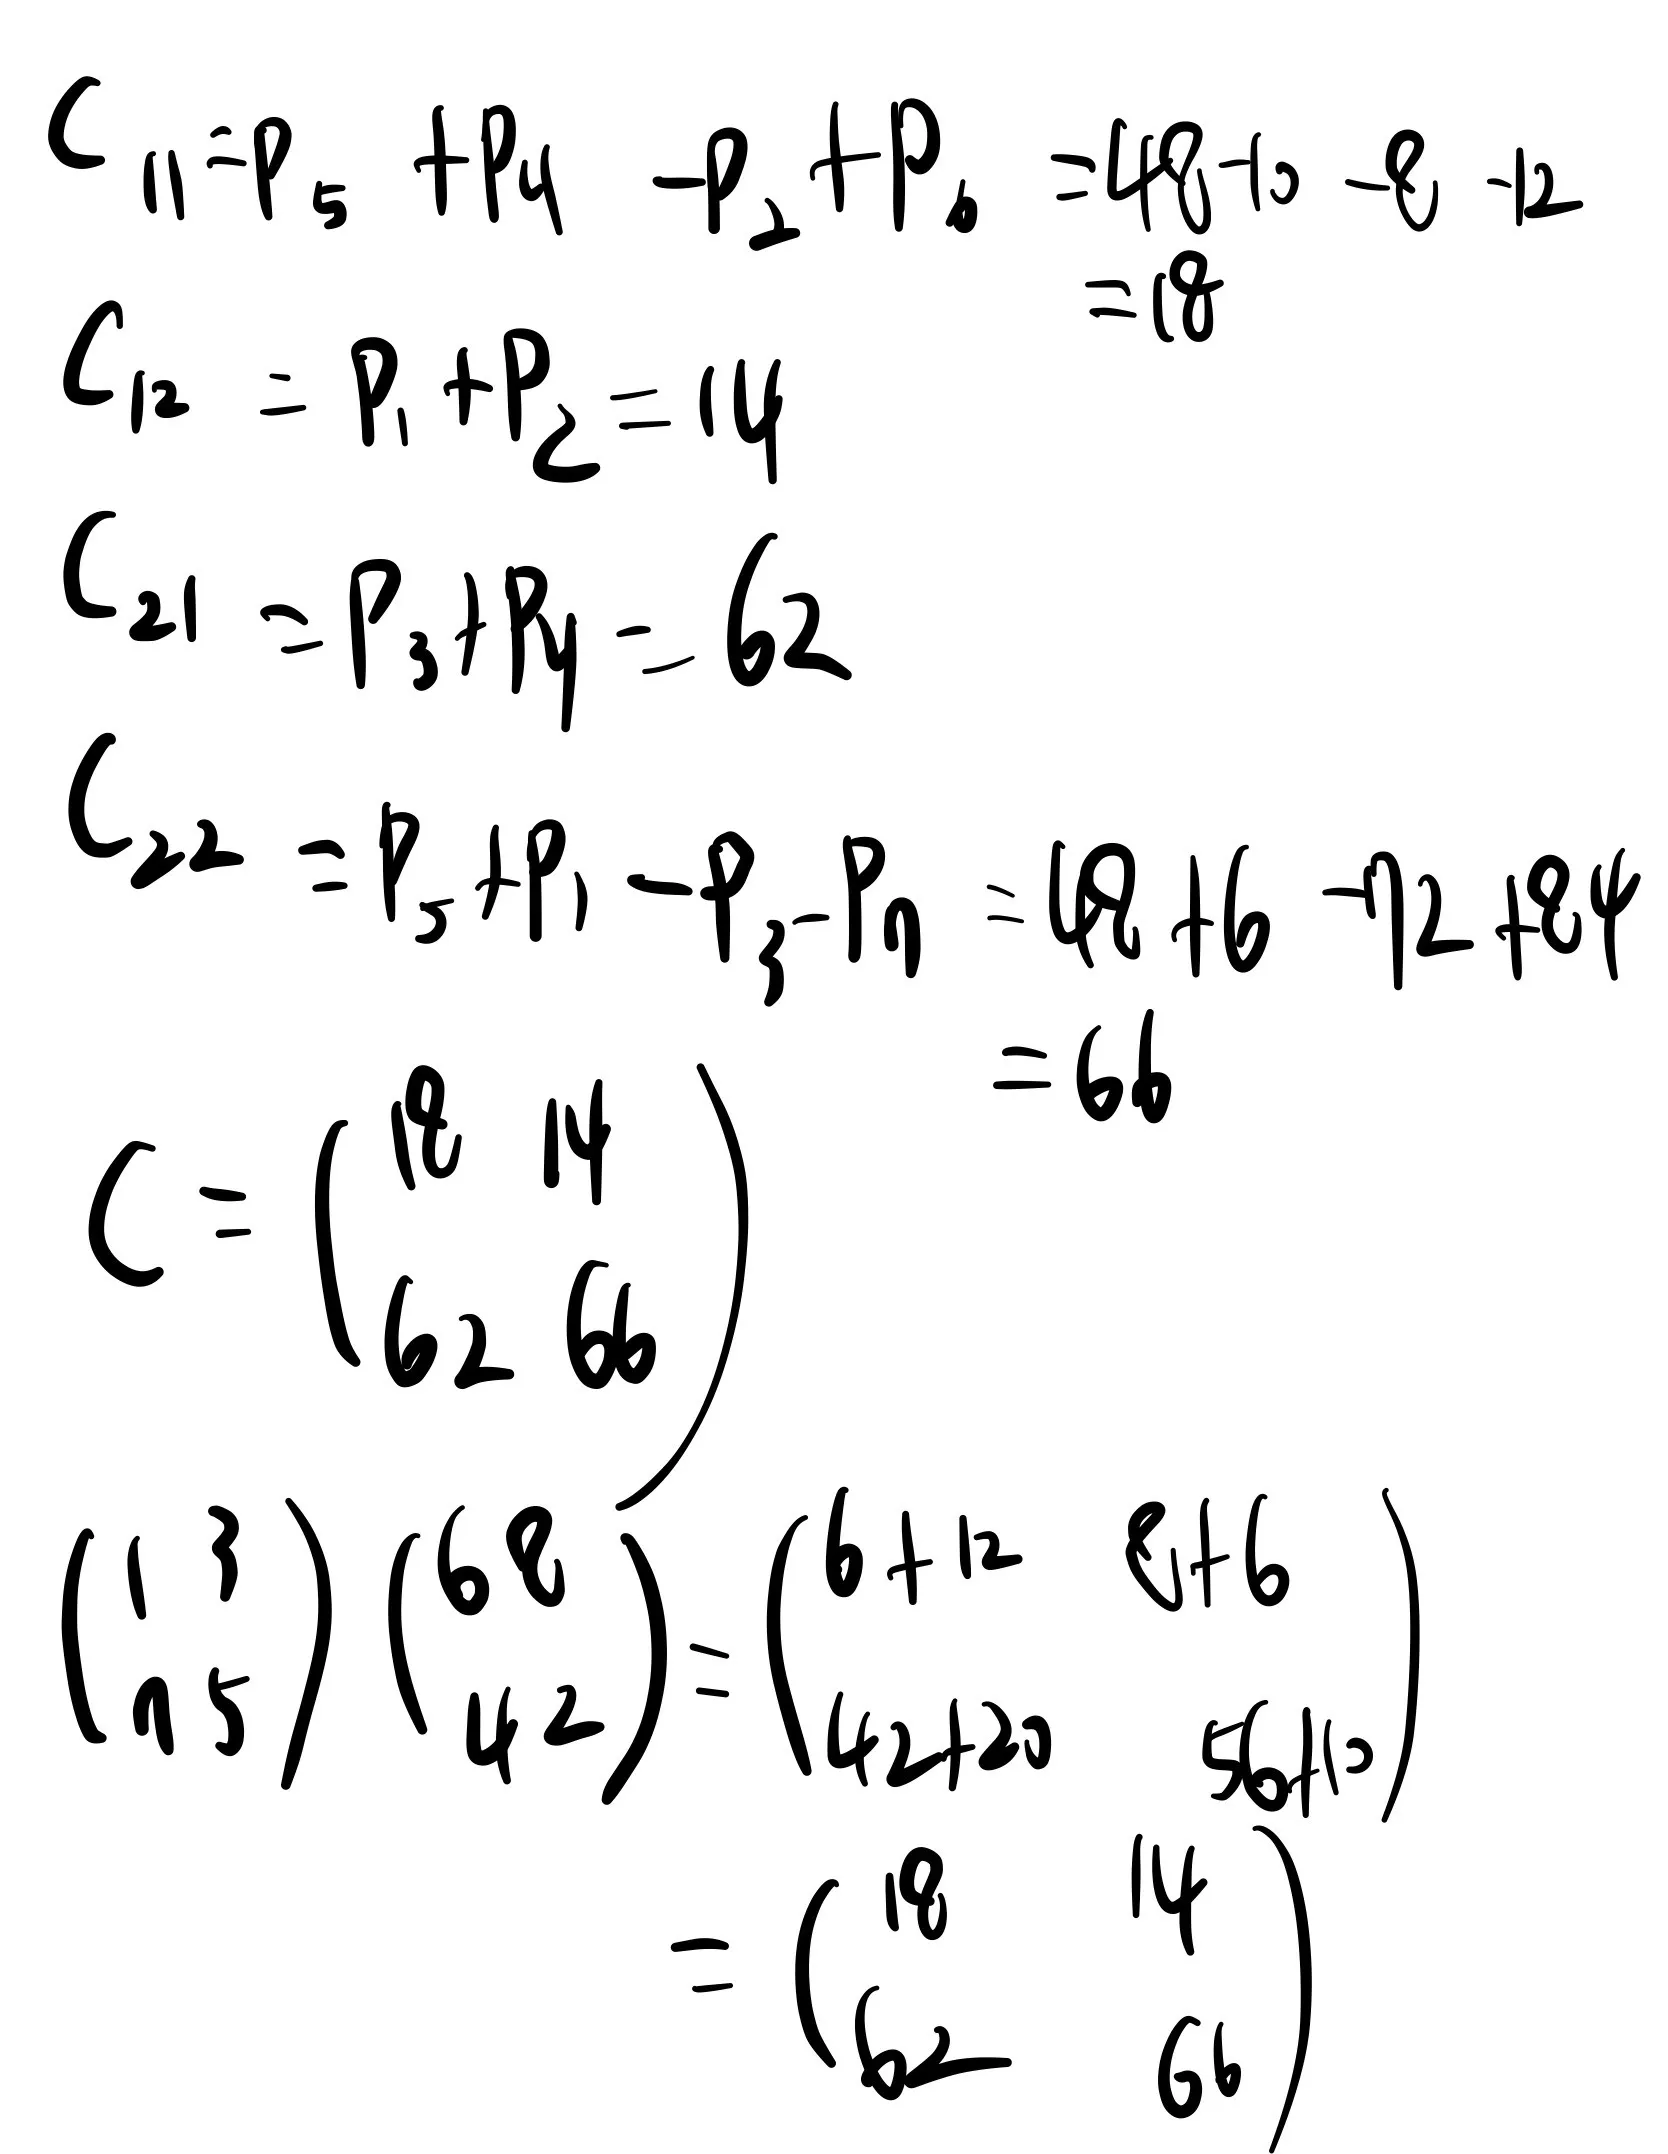 C₁₁ = P₅ + P₄ - P₂ + P₆ = 48 - 10 - 8 - 12
= 18
C₁₂ = P₁ + P₂ = 14
C₂₁ = P₃ + P₄ = 62
C₂₂ = P₅ + P₁ - P₃ - P₇ = 48 + 6 - 72 + 84
= 66
C = ( 18 14
62 66 )
( 1 3 ) ( 6 8 ) = ( 6+12 8+6 )
( 7 5 ) ( 4 2 ) ( 42+20 56+10 )
= ( 18 14
62 66 )